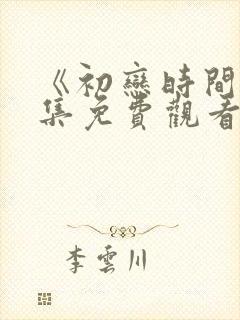 《初戀時間
集免費觀看
李雲川